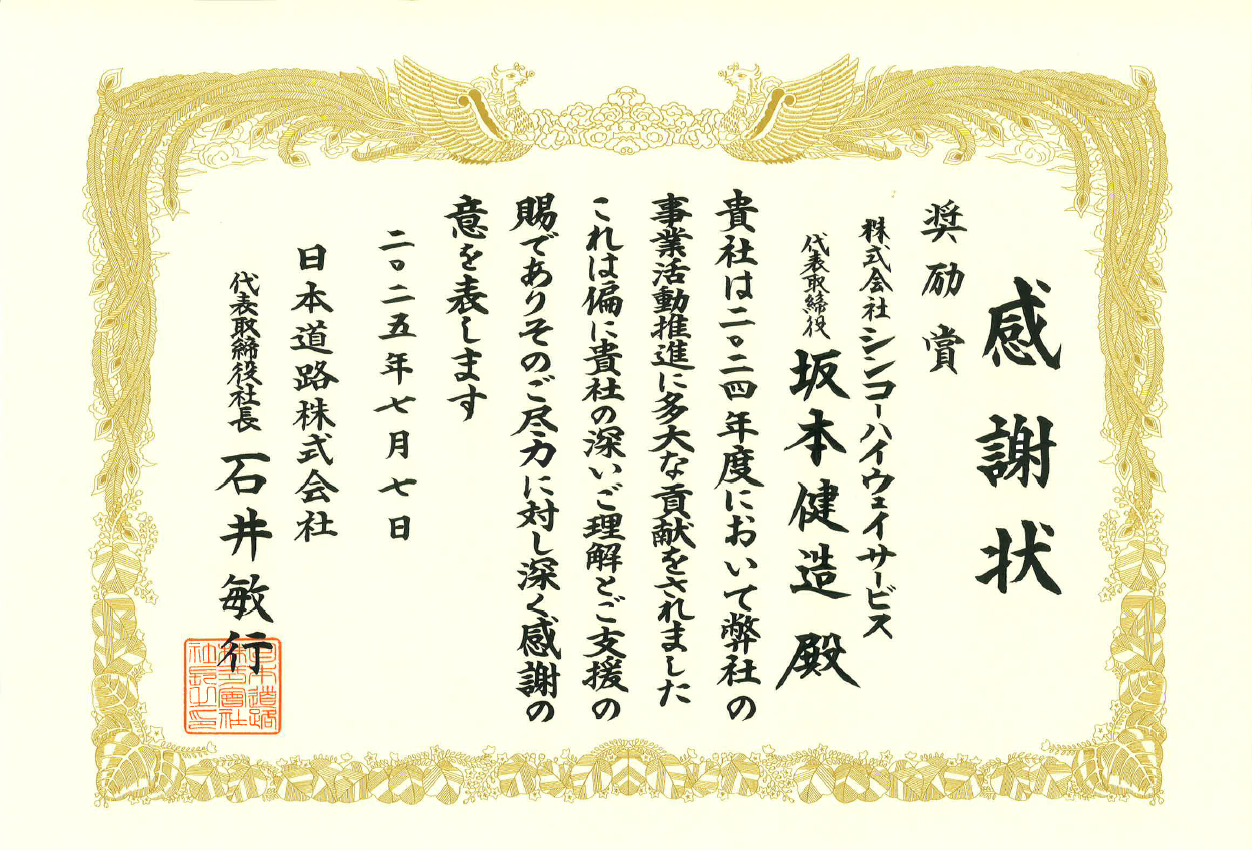 感謝状
奨励賞
株式会社シンコーハイウェイサービス
代表取締役 坂本健造 殿
貴社は二〇二四年度において弊社の
事業活動推進に多大な貢献をされました
これは偏に貴社の深いご理解とご支援の
賜でありそのご尽力に対し深く感謝の
意を表します
二〇二五年七月七日
日本道路株式会社
代表取締役社長 石井敏行
日本道路
株式會社
社長之印